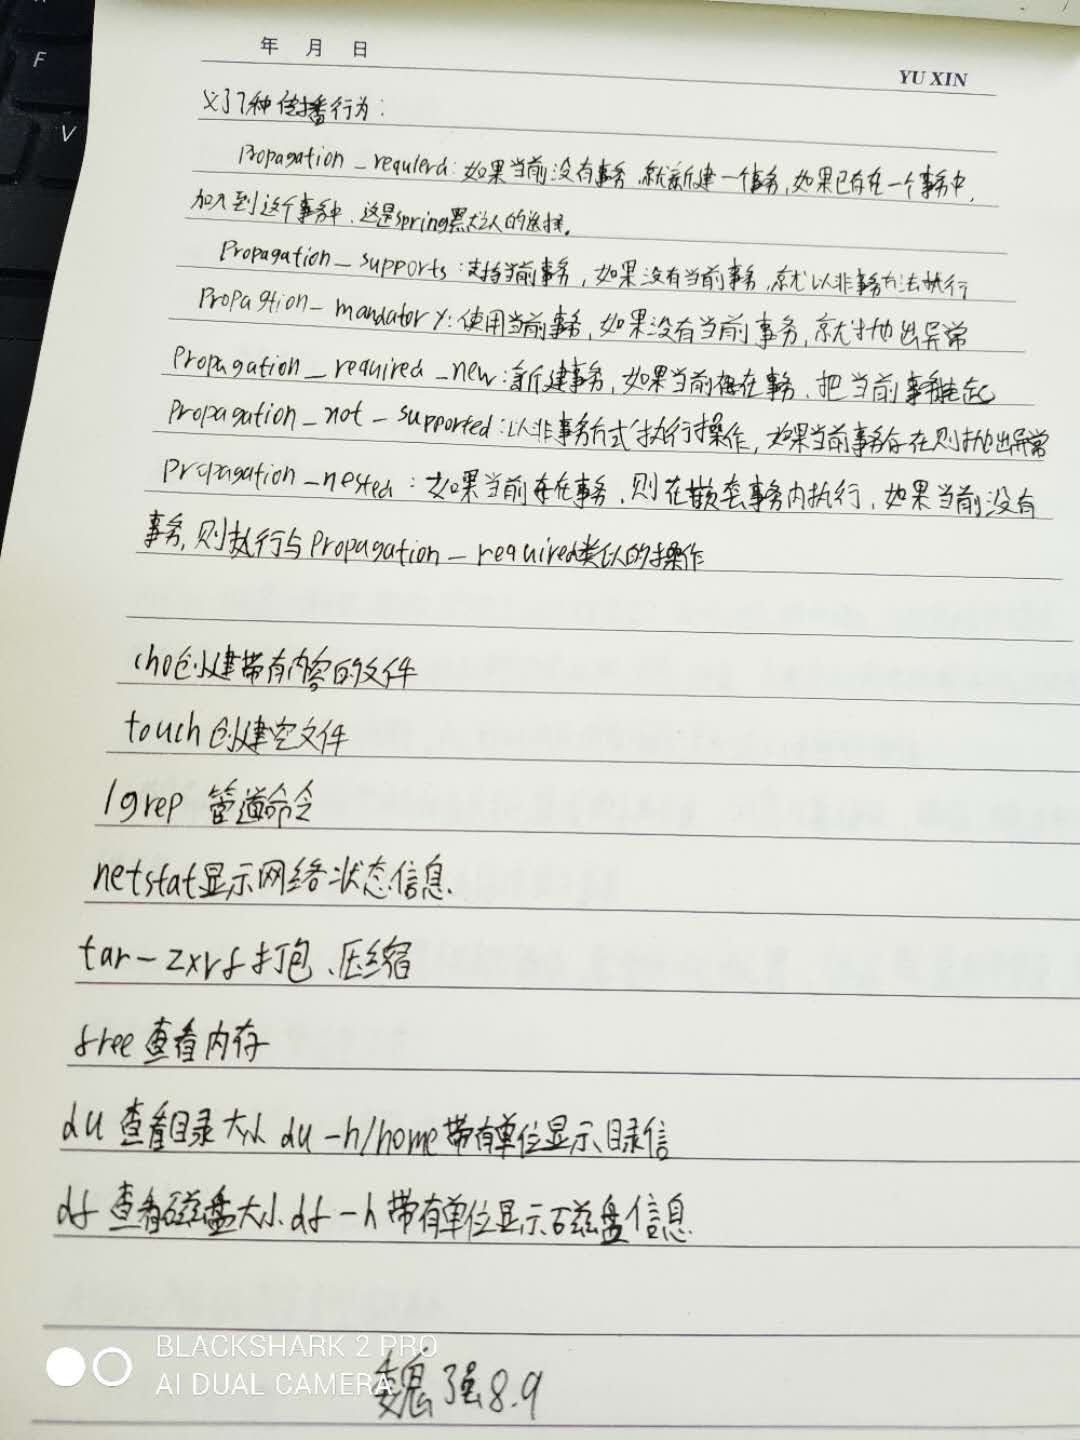 年 月 日
YU XIN
义了7种传播行为:
Propagation_requlerd:如果当前没有事务,就新建一个事务,如果已存在一个事务中,
加入到这个事务中、这是spring默认的选择。
Propagation_supports:支持当前事务,如果没有当前事务,就以非事务方法执行
Propagtion_mandatory:使用当前事务,如果没有当前事务,就抛出异常
Propagation_required_new:新建事务,如果当前存在事务、把当前事务挂起
Propagation_not_supported:以非事务方式执行操作,如果当前事务存在则抛出异常
Propagation_nested:如果当前存在事务、则在嵌套事务内执行,如果当前没有
事务,则执行与Propagation_required类似的操作
cho创建带有内容的文件
touch创建空文件
|grep 管道命令
netstat显示网络状态信息
tar-zxvf打包、压缩
free查看内存
du 查看目录大小 du -h/home带有单位显示目录信
df 查看磁盘大小 df -h 带有单位显示磁盘信息
BLACKSHARK 2 PRO
AI DUAL CAMERA
魏强8.9
F
V